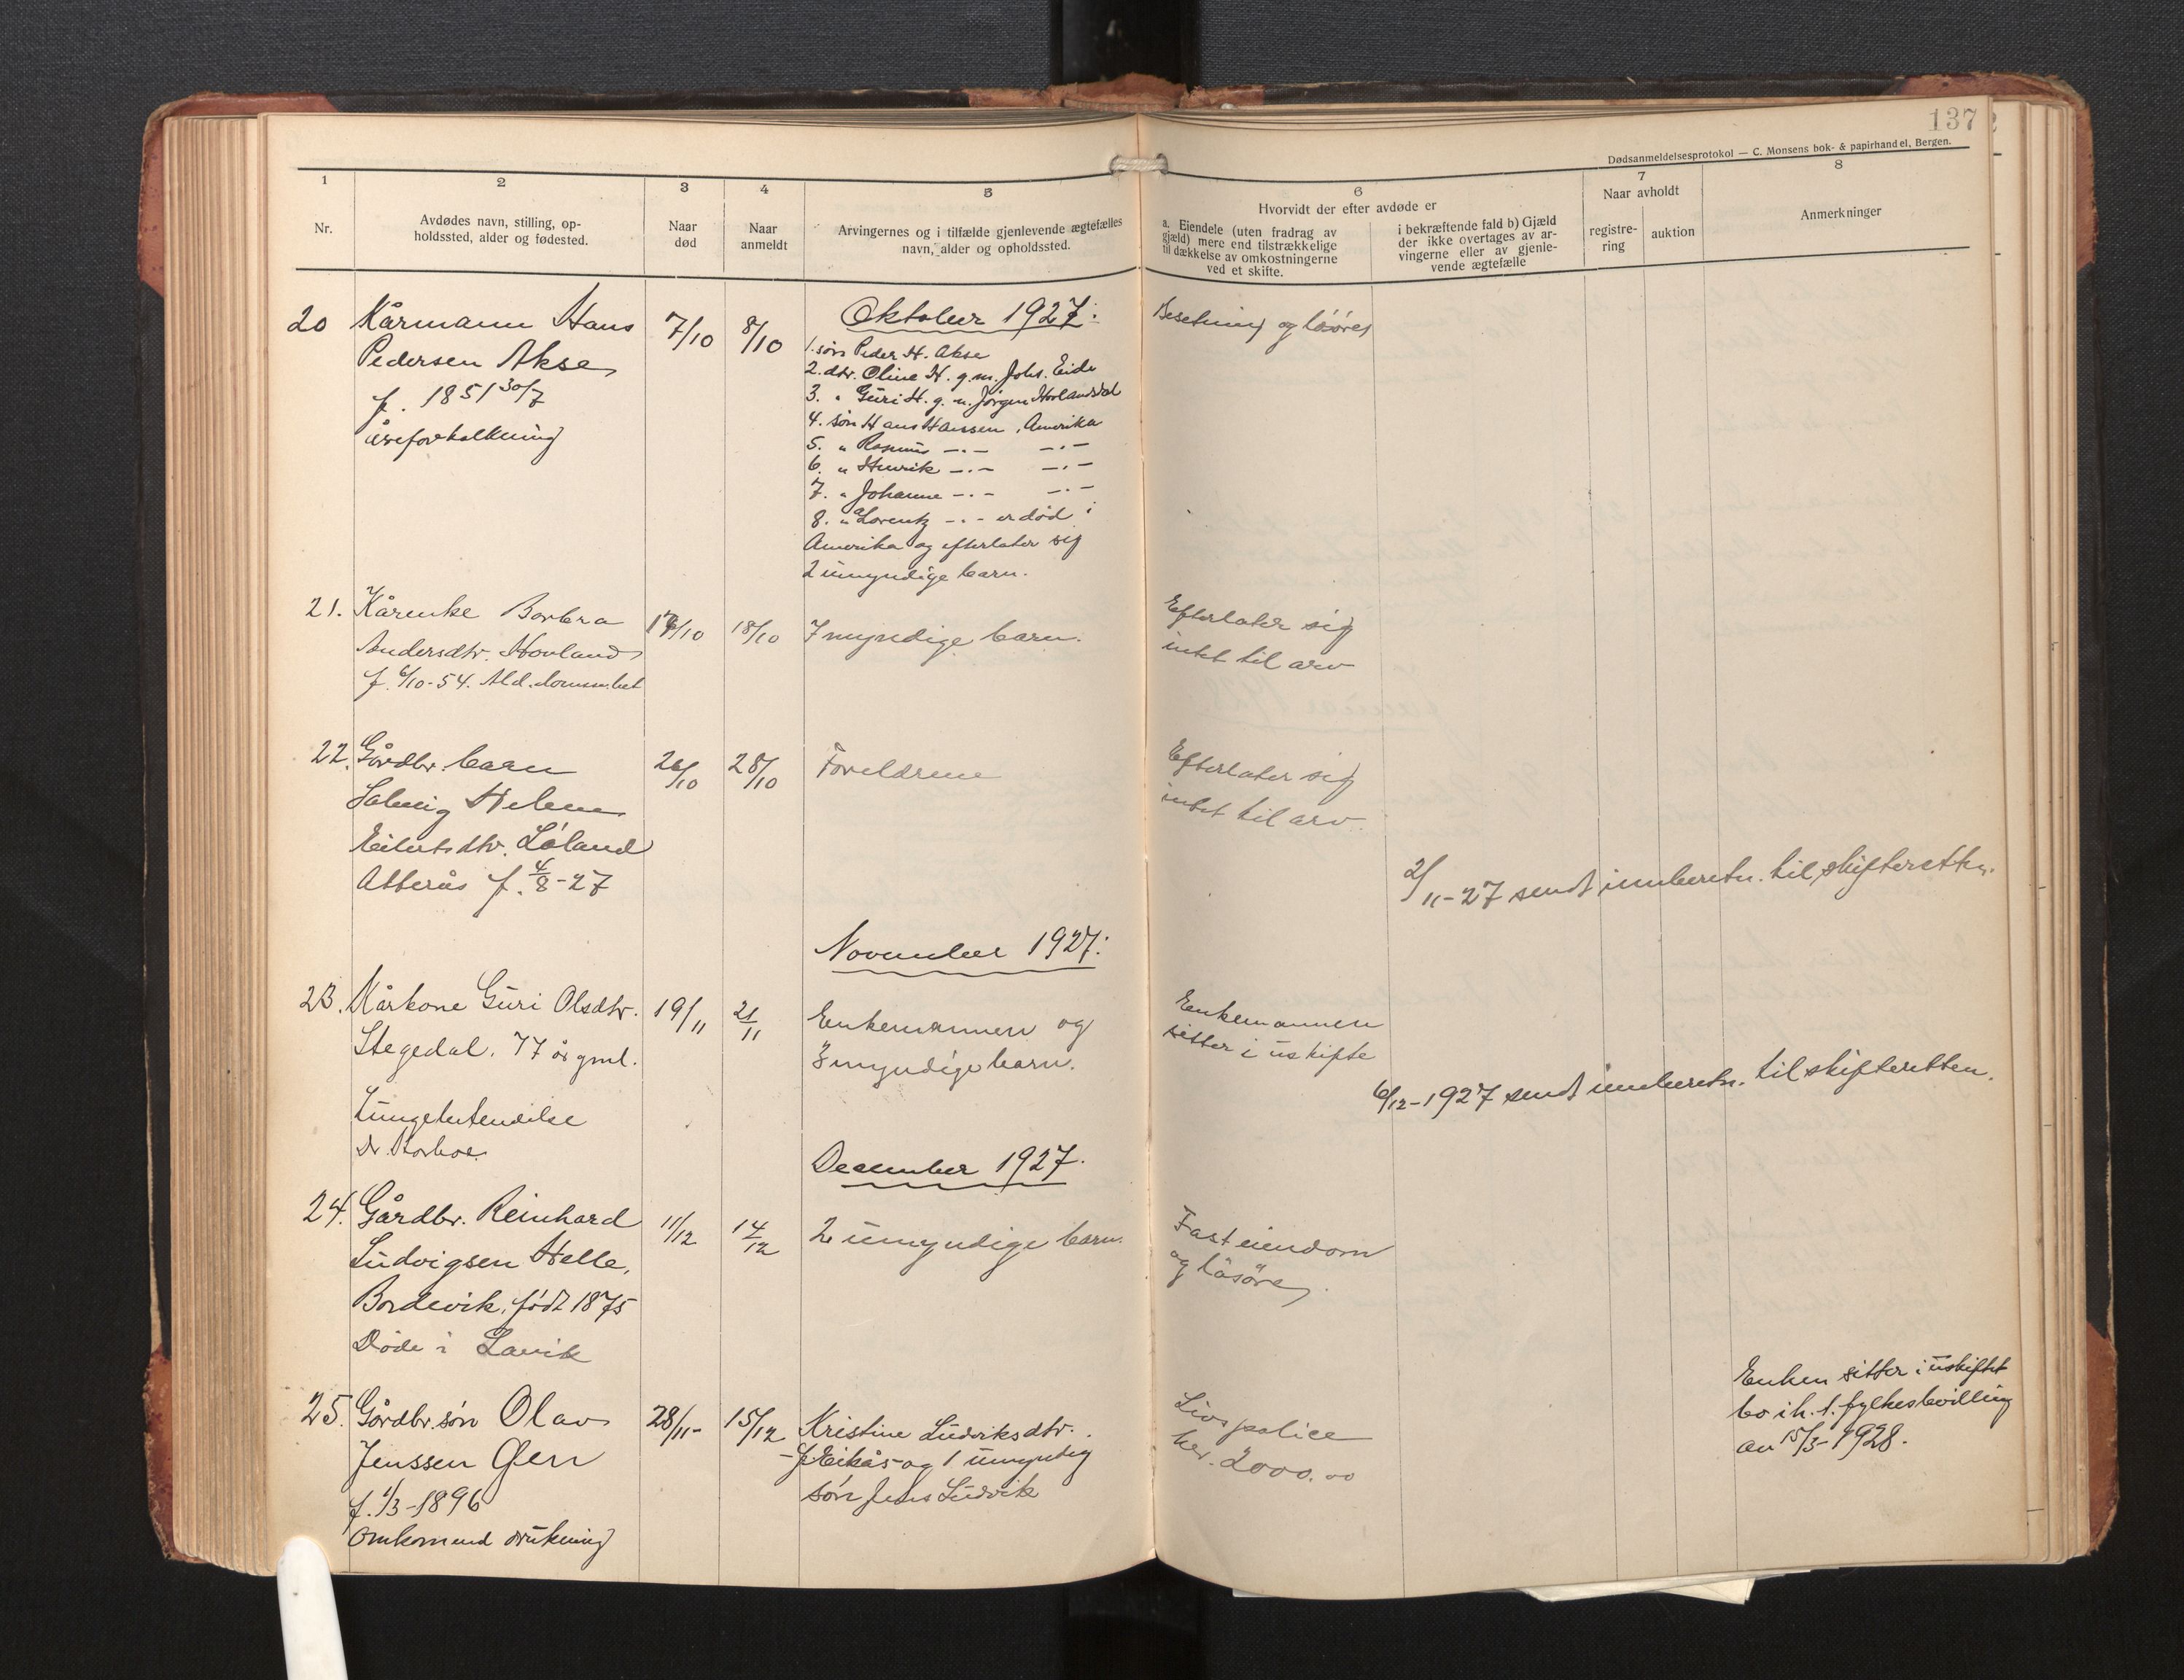 137
Dødsanmeldelsesprotokol — C. Monsens bok- & papirhandel, Bergen.
1 2 3 4 5 6 7 8
Nr.
Avdødes navn, stilling, op-
holdssted, alder og fødested.
Naar
død
Naar
anmeldt
Arvingernes og i tilfælde gjenlevende ægtefælles
navn, alder og opholdssted.
Hvorvidt der efter avdøde er
a. Eiendele (uten fradrag av
gjæld) mere end tilstrækkelige
til dækkelse av omkostningerne
ved et skifte.
i bekræftende fald b) Gjæld
der ikke overtages av ar-
vingerne eller av gjenle-
vende ægtefælle
Naar avholdt
registre-
ring
auktion
Anmerkninger
Oktober 1927:
20 Kårmann Hans
Pedersen Akse
f. 1851 30/7
åreforkalkning
7/10
8/10
1. søn Peder H. Akse
2. dtr. Oline H. g.m. Johs. Eide
3. " Guri H. g.m. Jørgen Hovlandsdal
4. søn Hans Hanssen, Amerika
5. " Rasmus -.- -.-
6. " Henrik -.- -.-
7. " Johanne -.- -.-
8. " Lorentz -.- er død i
Amerika og efterlater sig
2 umyndige barn.
Besetning og løsøre
21. Kårenke Borbra
Andersdtr. Hovland
f. 6/10-54. Ald.dommshet
17/10
18/10
7 myndige barn.
Efterlater sig
intet til arv
22. Gårdbr. barn
Solveig Helene
Eilertsdtr. Løland
Atterås f. 4/8-27
26/10
28/10
Foreldrene
Efterlater sig
intet til arv.
2/11-27 sendt innberetn. til skifteretten.
November 1927:
23. Kårkone Guri Olsdtr.
Stegedal. 77 år gml.
Lungebetendelse
Dr.
19/11
21/11
Enkemannen og
3 myndige barn.
Enkemannen
sitter i uskifte
6/12-1927 sendt innberetn. til skifteretten.
December 1927.
24. Gårdbr. Reinhard
Ludvigsen Helle,
Bordevik, født 1875
Døde i Lavik
11/12
14/12
2 umyndige barn.
Fast eiendom
og løsøre
25. Gårdbr. søn Olav
Jenssen Gjen
f. 1/3-1896
Omkom ved drukning
28/11-
15/12
Kristine Ludviksdtr.
f. Eikås og 1 umyndig
søn Jens Ludvik
Livspolice
kr. 2000.00
Enken sitter i uskiftet
bo ih.t. fylkesbevilling
av 15/3-1928.